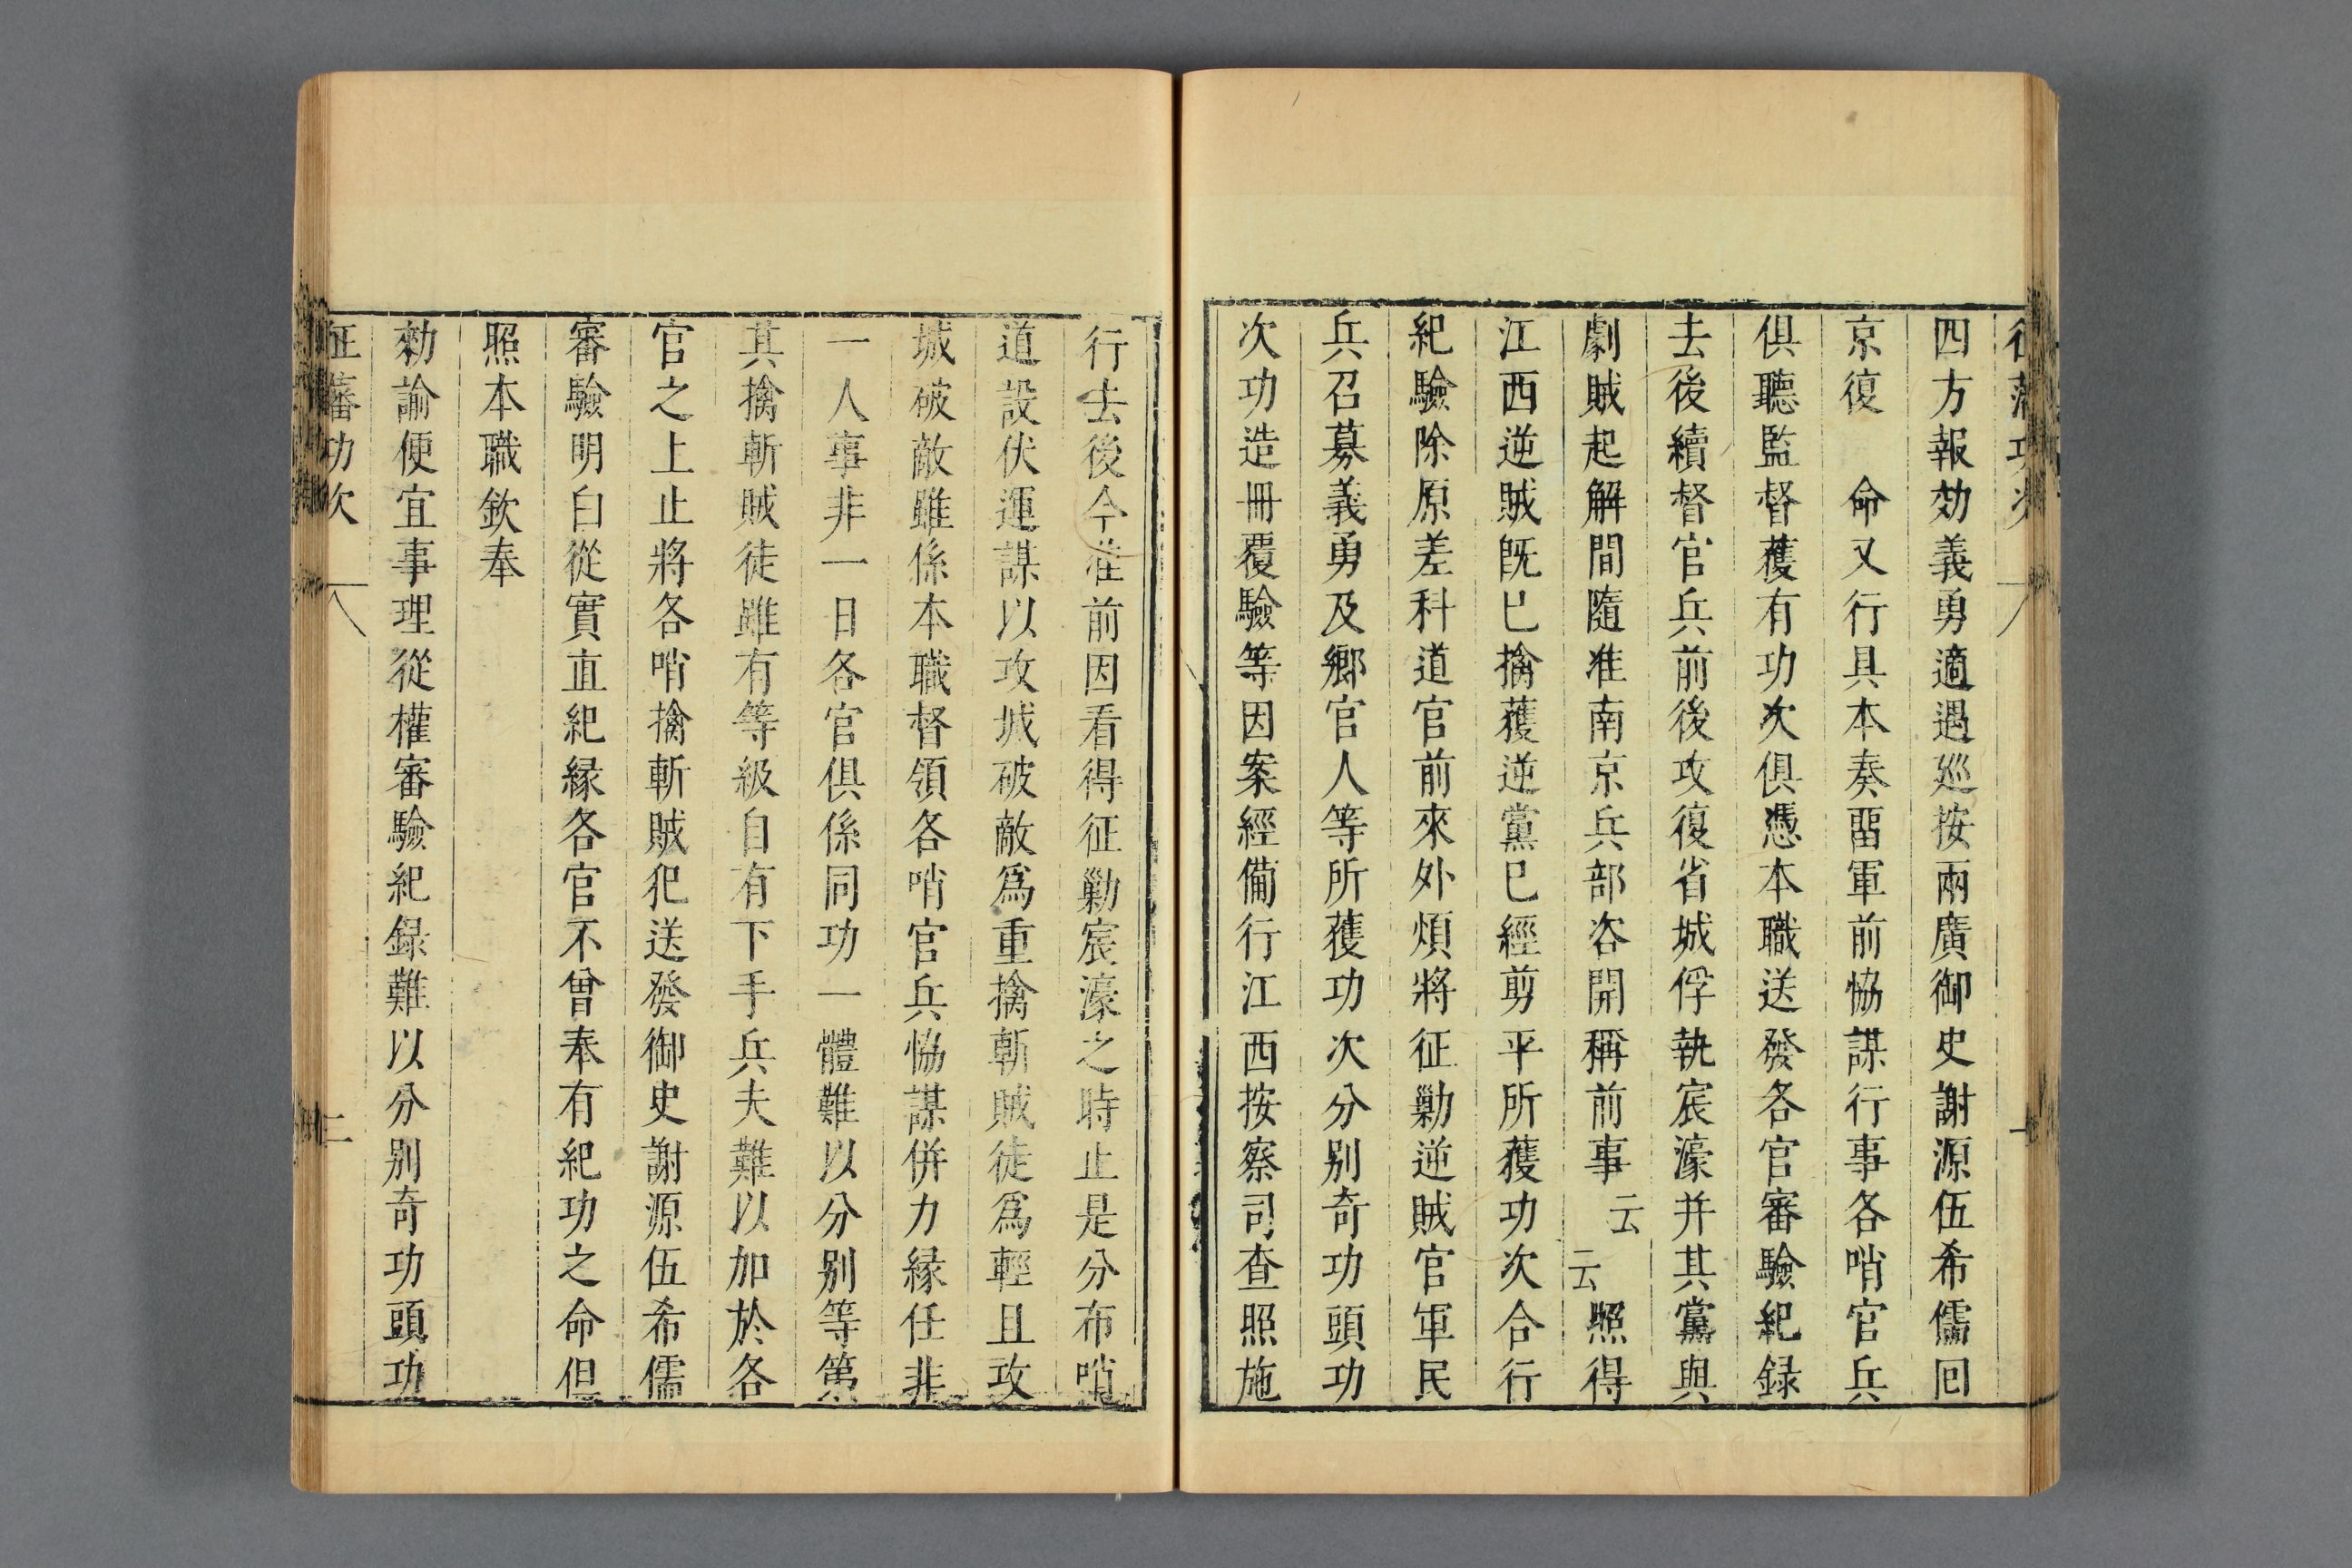 四方報効義勇適遇廵按兩廣御史謝源伍希儒囘
京復　命又行具本奏畱軍前恊謀行事各哨官兵
俱聽監督獲有功次俱憑本職送發各官審驗紀録
去後續督官兵前後攻復省城俘執宸濠并其黨與
劇賊起解間隨准南京兵部咨開稱前事云云照得
江西逆賊旣已擒獲逆黨已經剪平所獲功次合行
紀驗除原差科道官前來外煩將征勦逆賊官軍民
兵召募義勇及鄉官人等所獲功次分别奇功頭功
次功造冊覆驗等因案經備行江西按察司查照施
行去後今准前因看得征勦宸濠之時止是分布哨
道設伏運謀以攻城破敵爲重擒斬賊徒爲輕且攻
城破敵雖係本職督領各哨官兵恊謀併力縁任非
一人事非一日各官俱係同功一體難以分别等第
其擒斬賊徒雖有等級自有下手兵夫難以加於各
官之上止將各哨擒斬賊犯送發御史謝源伍希儒
審驗明白從實直紀縁各官不曾奉有紀功之命但
照本職欽奉
勑諭便宜事理從權審驗紀録難以分别奇功頭功
征藩功次　二